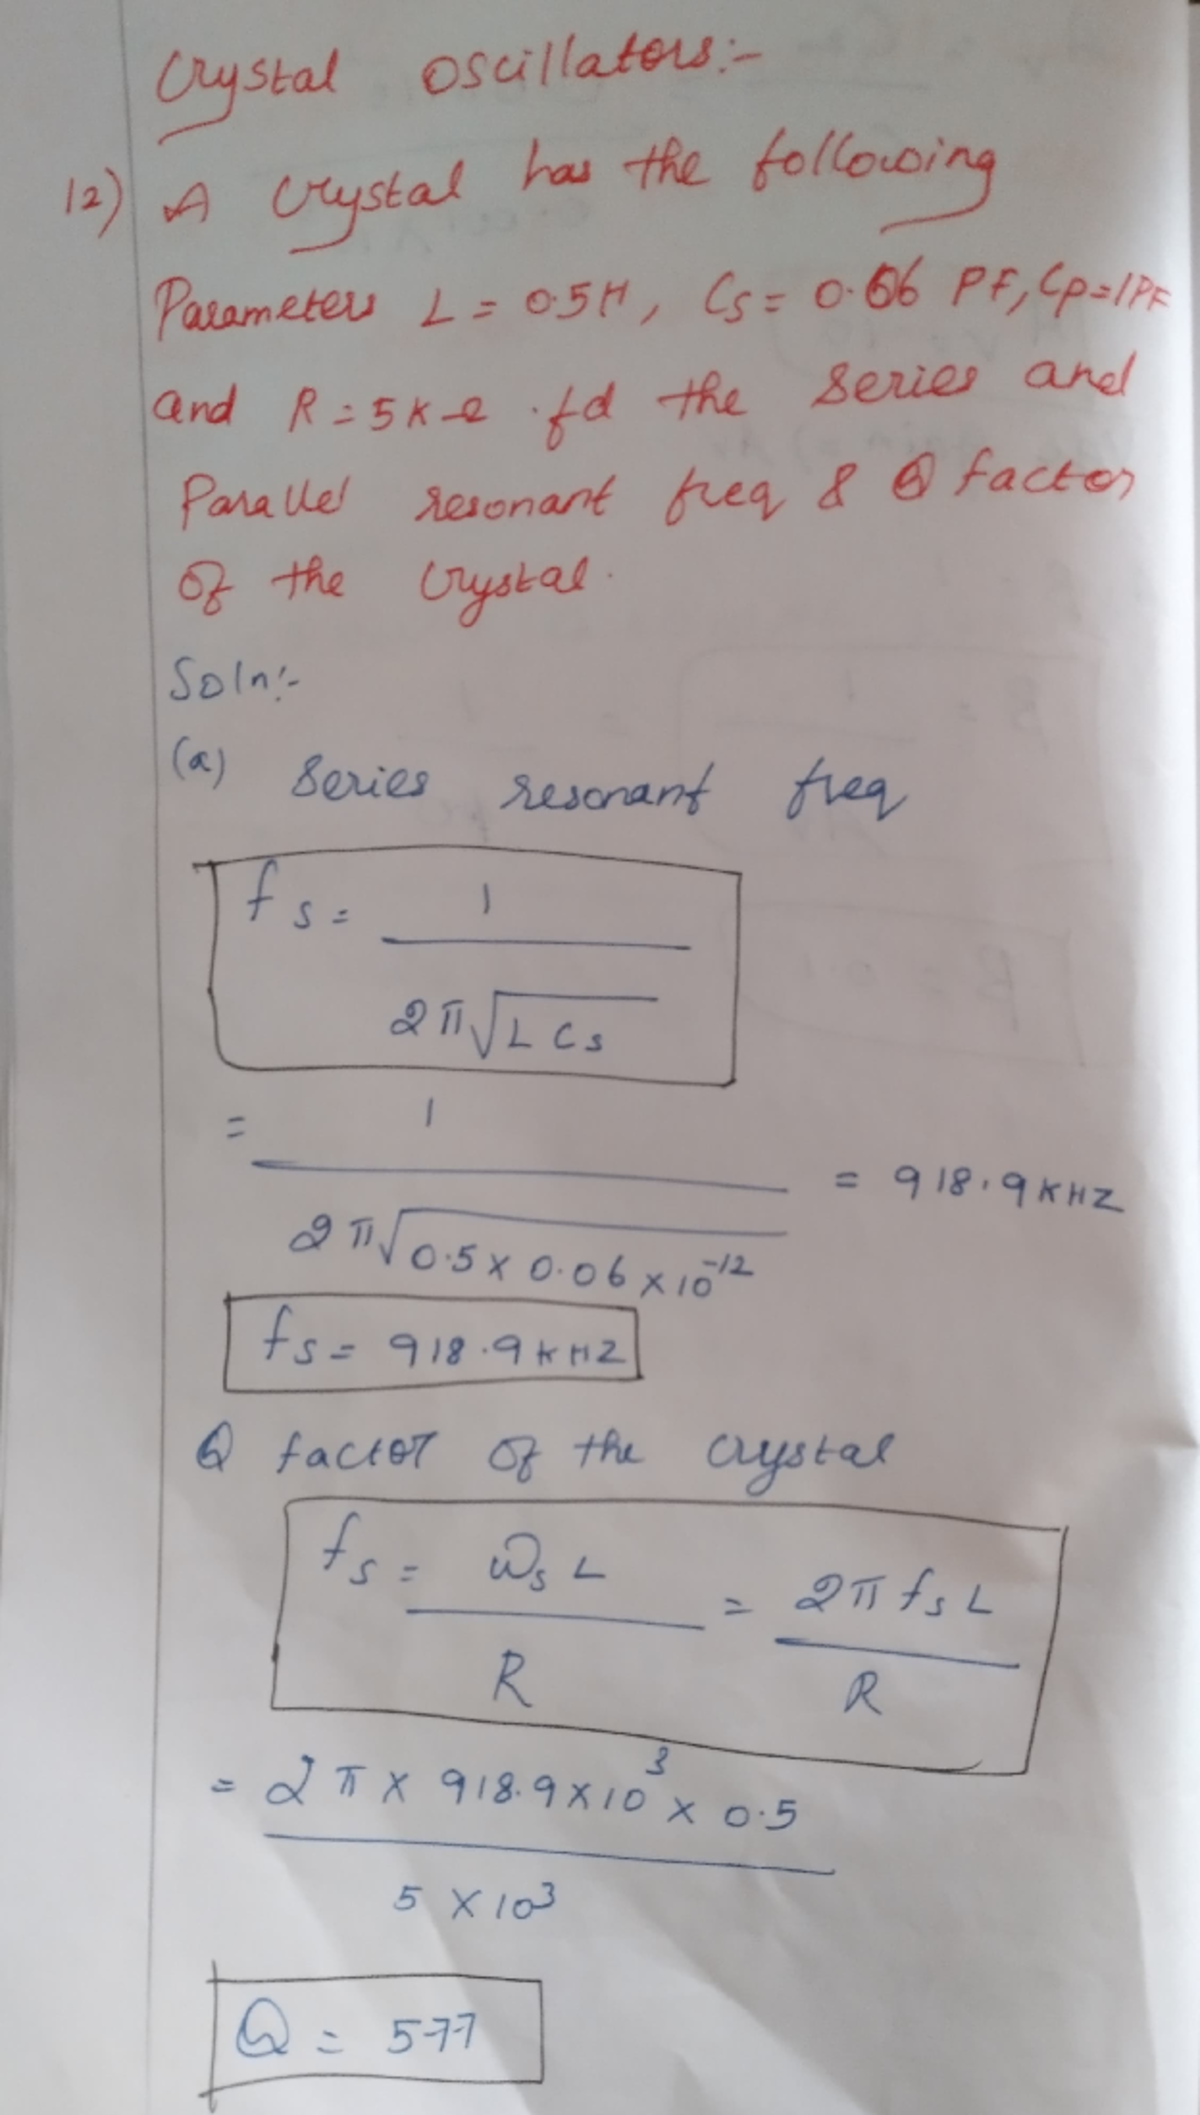 Crystal Oscillators:-
12) A Crystal has the following
Parameters L = 0.5H, Cs = 0.06 PF, Cp=1PF
and R = 5K Ω . fd the Series and
Parallel resonant freq & Q factor
Of the Crystal.
Soln:-
(a) Series resonant freq
fs = 1 / 2π√LCs
= 1 / 2π√0.5 × 0.06 × 10^-12 = 918.9KHZ
fs = 918.9KHZ
Q factor Of the Crystal
fs = ωs L / R = 2π fs L / R
= 2π × 918.9×10^3 × 0.5 / 5 × 10^3
Q = 577